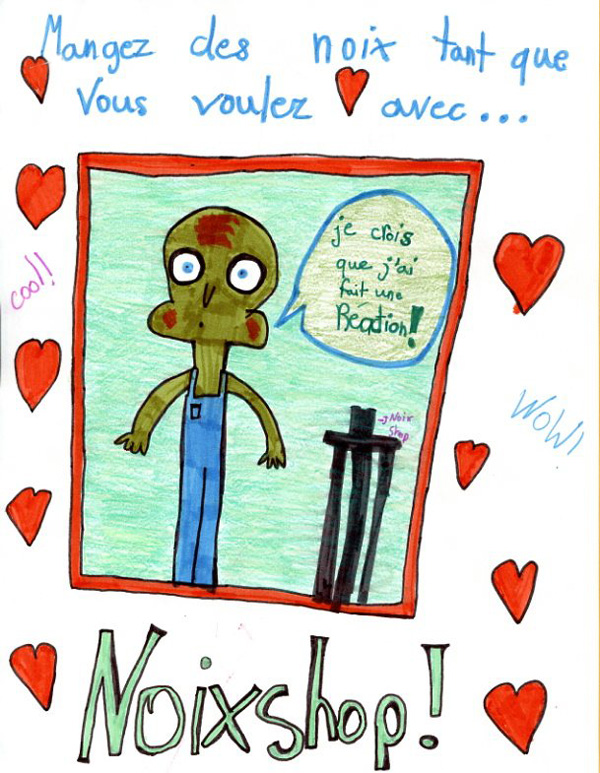 Mangez des noix tant que
Vous voulez avec...
je crois
que j'ai
fait une
Reaction!
cool!
WOW!
→ Noix
Shop
Noixshop!